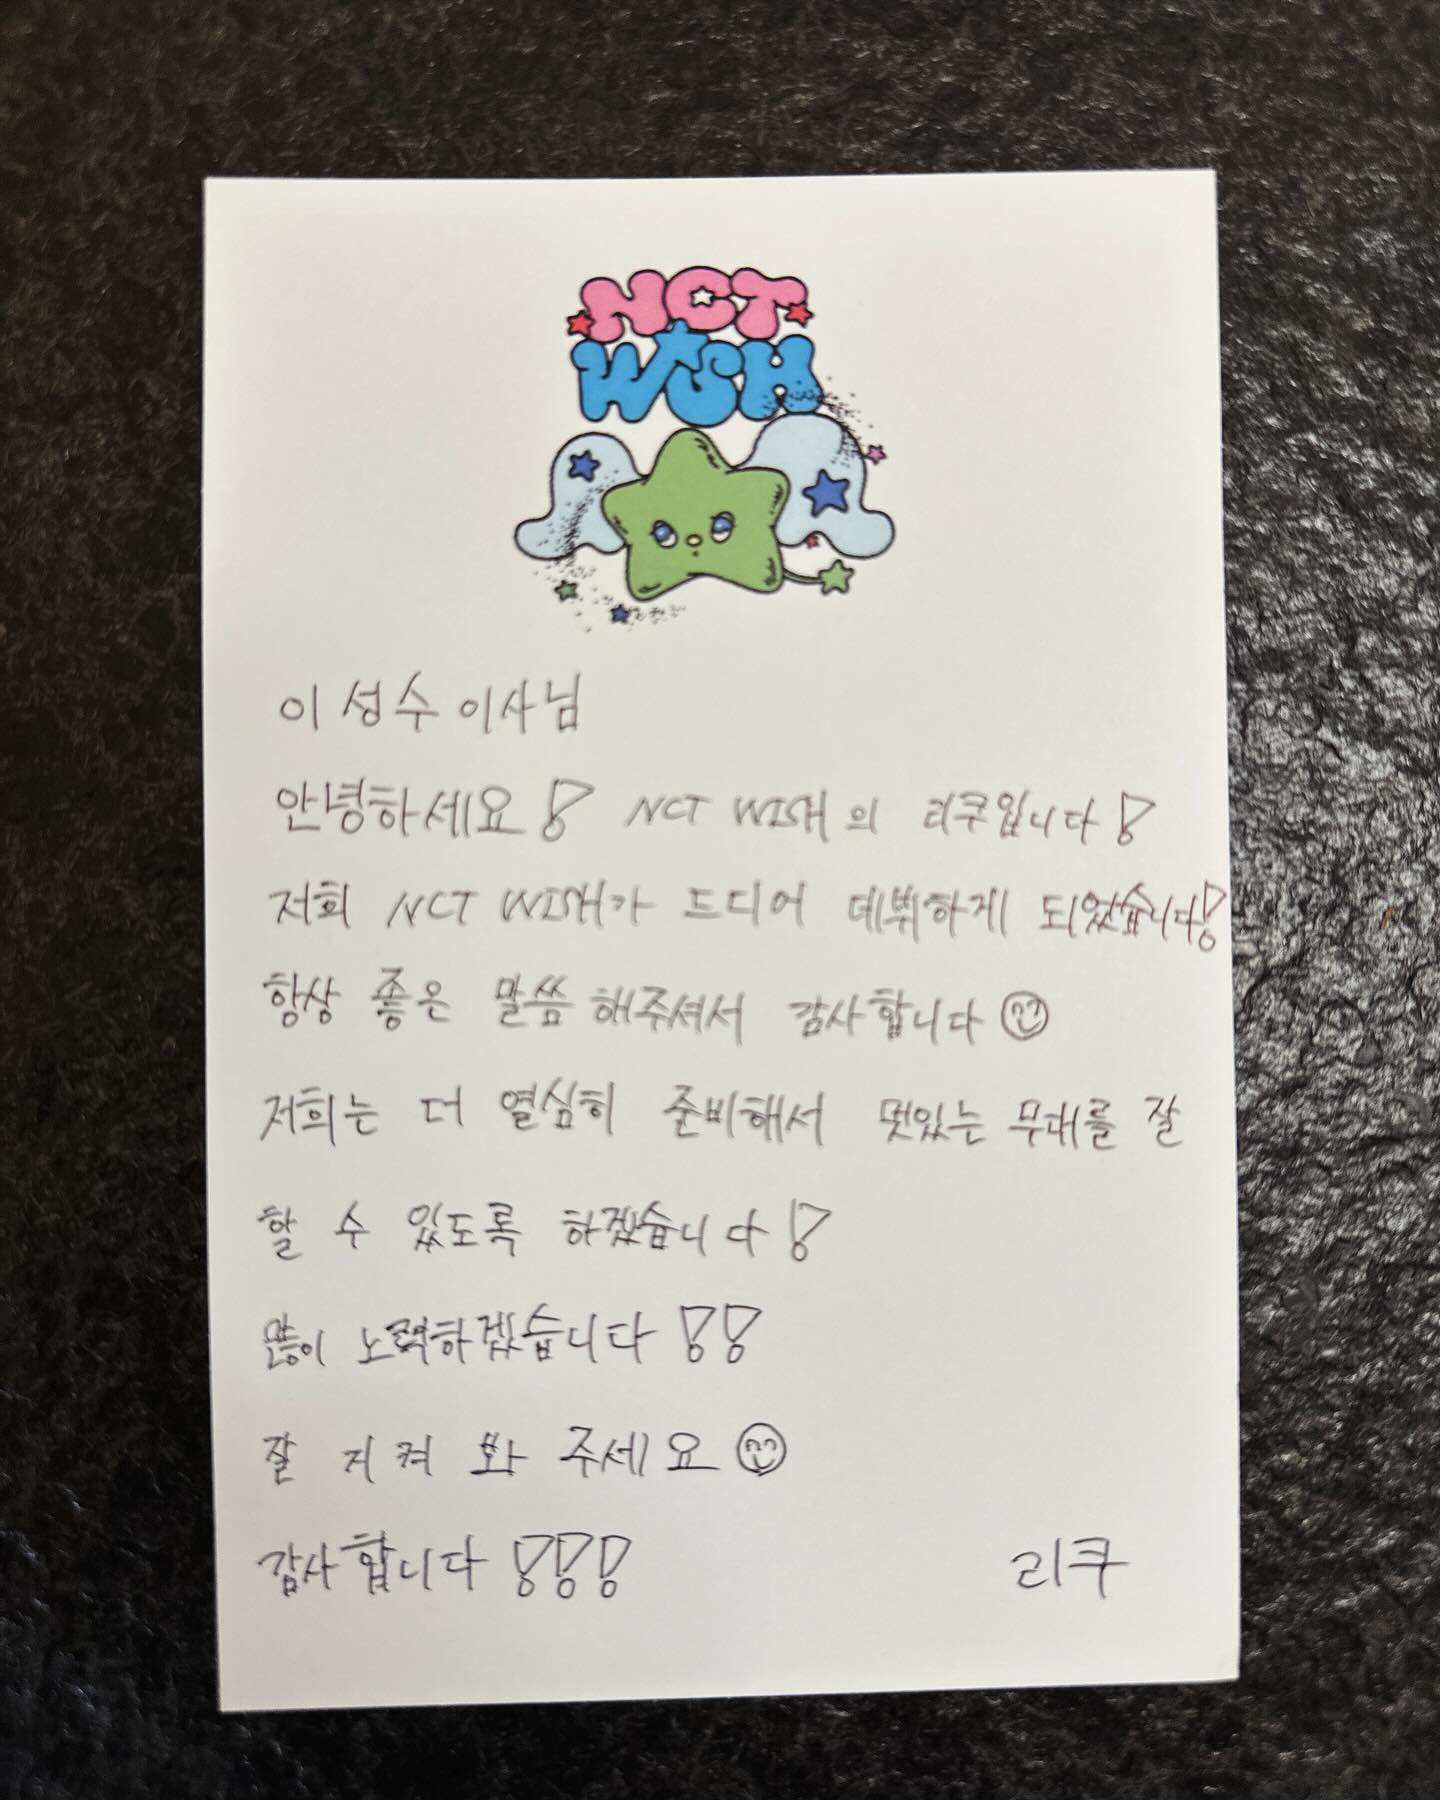 NCT
WISH
이성수 이사님
안녕하세요! NCT WISH의 리쿠입니다!
저희 NCT WISH가 드디어 데뷔하게 되었습니다!
항상 좋은 말씀 해주셔서 감사합니다☺
저희는 더 열심히 준비해서 멋있는 무대를 잘
할 수 있도록 하겠습니다!
많이 노력하겠습니다!!
잘 지켜 봐 주세요☺
감사합니다!!! 리쿠